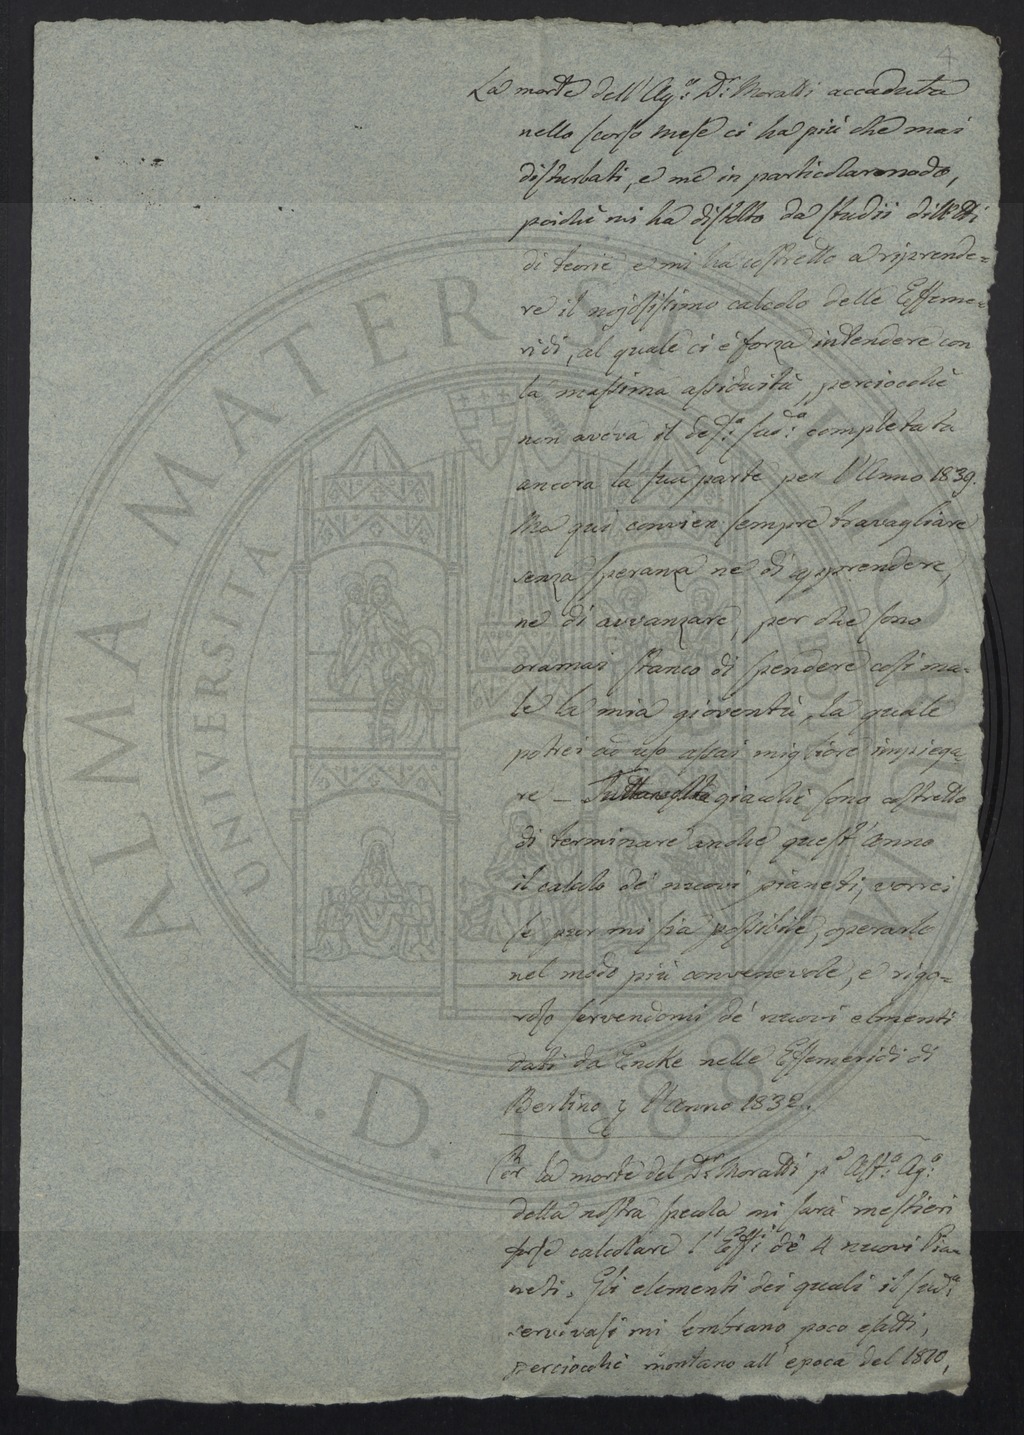 4
La morte dell'Ag:º D.r Moratti accaduta
nello scorso mese ci ha più che mai
disturbati, e me in particolar modo,
poichè mi ha distolto da studii diletti
di teorie e mi ha costretto a riprende=
re il nojosissimo calcolo delle Effeme=
ridi, al quale ci è forza intendere con
la massima assiduità, perciocchè
non aveva il def:º sud:º completata
ancora la sua parte per l'Anno 1839.
Ma qui convien sempre travagliare
senza speranza nè di apprendere,
nè di avvanzare, per che sono
oramai stanco di spendere così ma=
le la mia gioventù, la quale
potrei ad uso assai migliore impiega=
re – giacchè sono costretto
di terminare anche quest'anno
il calcolo de' nuovi pianeti, vorrei
se pur mi sia possibile, operarlo
nel modo più convenevole, e rigo=
roso servendomi de' nuovi elmenti
dati da Encke nelle Effemeridi di
Berlino l'anno 1832.
Per la morte del D.r Moratti p.º Ast:º Ag:º
della nostra specola mi sarà mestieri
forse calcolare l'Eff:i de' 4 nuovi Pia=
neti. Gli elementi dei quali il sud:º
servivasi mi sembrano poco esatti,
perciocchè montano all'epoca del 1810,
ALMA MATER STUDIORUM
UNIVERSITA
A.D. 1088